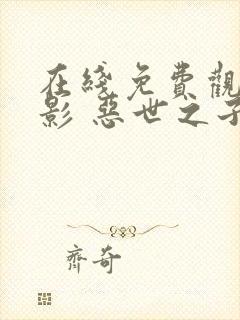 在綫免費觀
影 惡世之子
齊奇